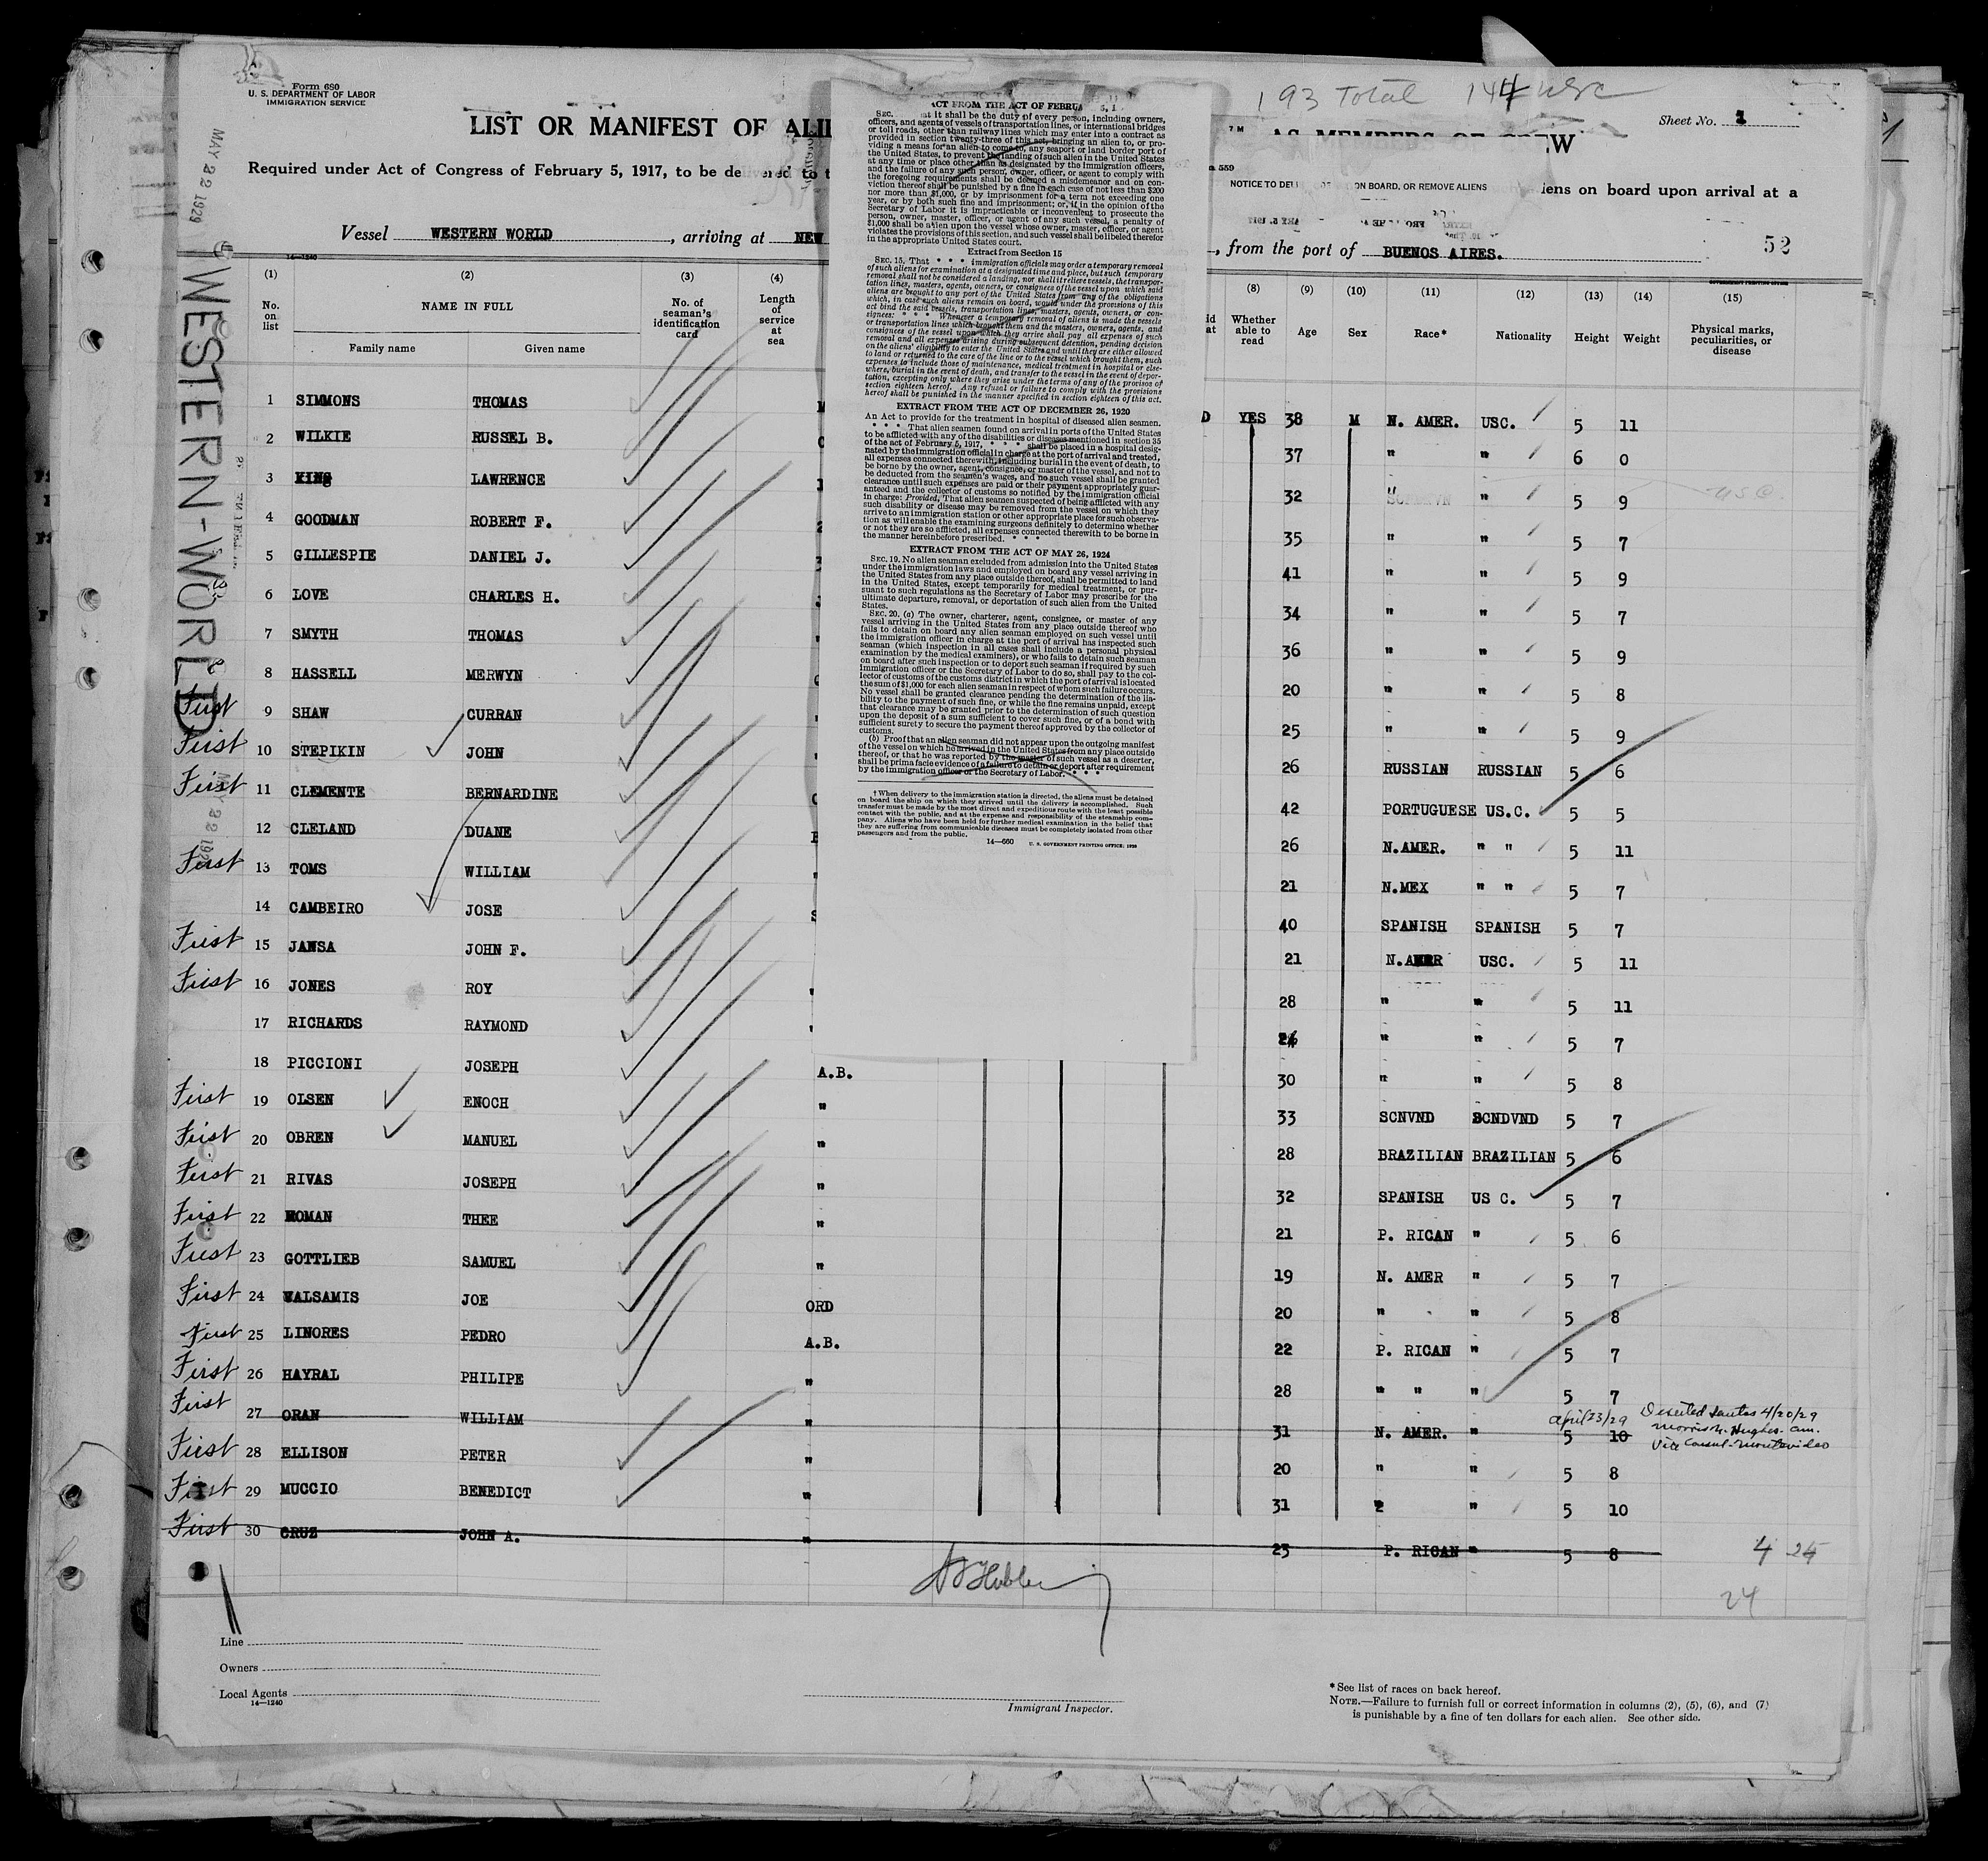 193 Total 144 USC
Form 680
U. S. DEPARTMENT OF LABOR
IMMIGRATION SERVICE
Sheet No. 1
LIST OR MANIFEST OF ALI
AS MEMBERS OF CREW
Required under Act of Congress of February 5, 1917, to be delivered to t
NOTICE TO ON BOARD, OR REMOVE ALIENS
iens on board upon arrival at a
Vessel WESTERN WORLD, arriving at NEW
, from the port of BUENOS AIRES.
52
MAY 22 1929
WESTERN-WORLD
(1) (2) (3) (4) (8) (9) (10) (11) (12) (13) (14) (15)
No. on list
NAME IN FULL
Family name Given name
No. of seaman's identification card
Length of service at sea
Whether able to read
Age Sex Race* Nationality Height Weight
Physical marks, peculiarities, or disease
1 SIMMONS THOMAS YES 38 M N. AMER. USC. 5 11
2 WILKIE RUSSEL B. 37 " " 6 0
3 KING LAWRENCE 32 " " 5 9
4 GOODMAN ROBERT F. 35 " " 5 7
5 GILLESPIE DANIEL J. 41 " " 5 9
6 LOVE CHARLES H. 34 " " 5 7
7 SMYTH THOMAS 36 " " 5 9
8 HASSELL MERWYN 20 " " 5 8
First 9 SHAW CURRAN 25 " " 5 9
First 10 STEPIKIN JOHN 26 RUSSIAN RUSSIAN 5 6
First 11 CLEMENTE BERNARDINE 42 PORTUGUESE US.C. 5 5
12 CLELAND DUANE 26 N.AMER. " " 5 11
First 13 TOMS WILLIAM 21 N.MEX " " 5 7
14 CAMBEIRO JOSE 40 SPANISH SPANISH 5 7
First 15 JANSA JOHN F. 21 N.AMER USC. 5 11
First 16 JONES ROY 28 " " 5 11
17 RICHARDS RAYMOND " " 5 7
18 PICCIONI JOSEPH A.B. 30 " " 5 8
First 19 OLSEN ENOCH " 33 SCNVND SCNDVND 5 7
First 20 OBREN MANUEL " 28 BRAZILIAN BRAZILIAN 5 6
First 21 RIVAS JOSEPH " 32 SPANISH US C. 5 7
First 22 ROMAN THEE " 21 P. RICAN " 5 6
First 23 GOTTLIEB SAMUEL " 19 N. AMER " 5 7
First 24 WALSAMIS JOE ORD 20 " " 5 8
First 25 LINORES PEDRO A.B. 22 P. RICAN " 5 7
First 26 HAYRAL PHILIPE " 28 " " " 5 7
First 27 ORAN WILLIAM " 31 N. AMER. " 5 10
April 23/29 Deserted Santos 4/20/29
Morris N. Hughes. Am.
Vice Consul. Montevideo
First 28 ELLISON PETER " 20 " " 5 8
First 29 MUCCIO BENEDICT " 31 " " 5 10
First 30 CRUZ JOHN A. " 23 P. RICAN " 5 8
4 24
24
Line
Owners
Local Agents
14—1240
Immigrant Inspector.
*See list of races on back hereof.
NOTE.—Failure to furnish full or correct information in columns (2), (5), (6), and (7)
is punishable by a fine of ten dollars for each alien. See other side.
ACT FROM THE ACT OF FEBRUA 5, 1
SEC. at it shall be the duty of every person, including owners,
officers, and agents of vessels of transportation lines, or international bridges
or toll roads, other than railway lines which may enter into a contract as
provided in section twenty-three of this act, bringing an alien to, or pro-
viding a means for an alien to come to, any seaport or land border port of
the United States, to prevent the landing of such alien in the United States
at any time or place other than as designated by the immigration officers,
and the failure of any such person, owner, officer, or agent to comply with
the foregoing requirements shall be deemed a misdemeanor and on con-
viction thereof shall be punished by a fine in each case of not less than $200
nor more than $1,000, or by imprisonment for a term not exceeding one
year, or by both such fine and imprisonment; or, if in the opinion of the
Secretary of Labor it is impracticable or inconvenient to prosecute the
person, owner, master, officer, or agent of any such vessel, a penalty of
$1,000 shall be a lien upon the vessel whose owner, master, officer, or agent
violates the provisions of this section, and such vessel shall be libeled therefor
in the appropriate United States court.
Extract from Section 15
SEC. 15. That * * * immigration officials may order a temporary removal
of such aliens for examination at a designated time and place, but such temporary
removal shall not be considered a landing, nor shall it relieve vessels, the transpor-
tation lines, masters, agents, owners, or consignees of the vessel upon which said
aliens are brought to any port of the United States from any of the obligations
which, in case such aliens remain on board, would under the provisions of this
act bind the said vessels, transportation lines, masters, agents, owners, or con-
signees: * * * Whenever a temporary removal of aliens is made the vessels
or transportation lines which brought them and the masters, owners, agents, and
consignees of the vessel upon which they arrive shall pay all expenses of such
removal and all expenses arising during subsequent detention, pending decision
on the aliens' eligibility to enter the United States and until they are either allowed
to land or returned to the care of the line or to the vessel which brought them, such
expenses to include those of maintenance, medical treatment in hospital or else-
where, burial in the event of death, and transfer to the vessel in the event of depor-
tation, excepting only where they arise under the terms of any of the provisos of
section eighteen hereof. Any refusal or failure to comply with the provisions
hereof shall be punished in the manner specified in section eighteen of this act.
EXTRACT FROM THE ACT OF DECEMBER 26, 1920
An Act to provide for the treatment in hospital of diseased alien seamen.
* * * That alien seamen found on arrival in ports of the United States
to be afflicted with any of the disabilities or diseases mentioned in section 35
of the act of February 5, 1917, * * * shall be placed in a hospital desig-
nated by the immigration official in charge at the port of arrival and treated,
all expenses connected therewith, including burial in the event of death, to
be borne by the owner, agent, consignee, or master of the vessel, and not to
be deducted from the seamen's wages, and no such vessel shall be granted
clearance until such expenses are paid or their payment appropriately guar-
anteed and the collector of customs so notified by the immigration official
in charge: Provided, That alien seamen suspected of being afflicted with any
such disability or disease may be removed from the vessel on which they
arrive to an immigration station or other appropriate place for such observa-
tion as will enable the examining surgeons definitely to determine whether
or not they are so afflicted, all expenses connected therewith to be borne in
the manner hereinbefore prescribed. * * *
EXTRACT FROM THE ACT OF MAY 26, 1924
SEC. 19. No alien seaman excluded from admission into the United States
under the immigration laws and employed on board any vessel arriving in
the United States from any place outside thereof, shall be permitted to land
in the United States, except temporarily for medical treatment, or pur-
suant to such regulations as the Secretary of Labor may prescribe for the
ultimate departure, removal, or deportation of such alien from the United
States.
SEC. 20. (a) The owner, charterer, agent, consignee, or master of any
vessel arriving in the United States from any place outside thereof who
fails to detain on board any alien seaman employed on such vessel until
the immigration officer in charge at the port of arrival has inspected such
seaman (which inspection in all cases shall include a personal physical
examination by the medical examiners), or who fails to detain such seaman
on board after such inspection or to deport such seaman if required by such
immigration officer or the Secretary of Labor to do so, shall pay to the col-
lector of customs of the customs district in which the port of arrival is located
the sum of $1,000 for each alien seaman in respect of whom such failure occurs.
No vessel shall be granted clearance pending the determination of the lia-
bility to the payment of such fine, or while the fine remains unpaid, except
that clearance may be granted prior to the determination of such question
upon the deposit of a sum sufficient to cover such fine, or of a bond with
sufficient surety to secure the payment thereof approved by the collector of
customs.
(b) Proof that an alien seaman did not appear upon the outgoing manifest
of the vessel on which he arrived in the United States from any place outside
thereof, or that he was reported by the master of such vessel as a deserter,
shall be prima facie evidence of a failure to detain or deport after requirement
by the immigration officer or the Secretary of Labor. * * *
† When delivery to the immigration station is directed, the aliens must be detained
on board the ship on which they arrived until the delivery is accomplished. Such
transfer must be made by the most direct and expeditious route with the least possible
contact with the public, and at the expense and responsibility of the steamship com-
pany. Aliens who have been held for further medical examination in the belief that
they are suffering from communicable diseases must be completely isolated from other
passengers and from the public.
14—660 U. S. GOVERNMENT PRINTING OFFICE: 1929